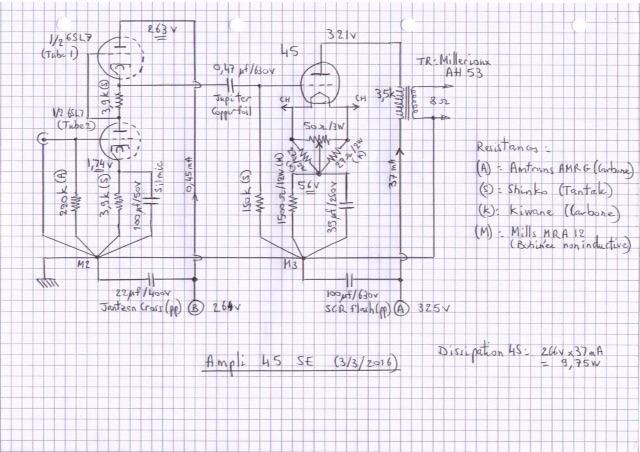 263v
1/2 6SL7
(Tube 1)
3,9k (S)
1/2 6SL7
(Tube 2)
1,74v
220k (A)
3,9k (S)
100µf/50v
Silmic
0,45mA
M2
22µf/400v
Jantzen Cross (pp)
B 264v
0,47 µf/630v
Jupiter
(copper foil)
45
321v
CH
CH
50Ω/3W
27Ω/2W
(A)
27Ω/2W
(A)
56v
150k (S)
1500Ω/12W (M)
39µf/250v
M3
100µf/630v
SCR flash (pp)
A 325v
37mA
3,5k
TR-Millerioux
AH 53
8Ω
Resistances :
(A) = Amtrans AMRG (Carbone)
(S) = Shinko (Tantale)
(K) = Kiwame (Carbone)
(M) = Mills MRA 12
(Bobinée non inductive)
Ampli 45 SE (3/3/2016)
Dissipation 45 : 266v x 37mA
= 9,75w